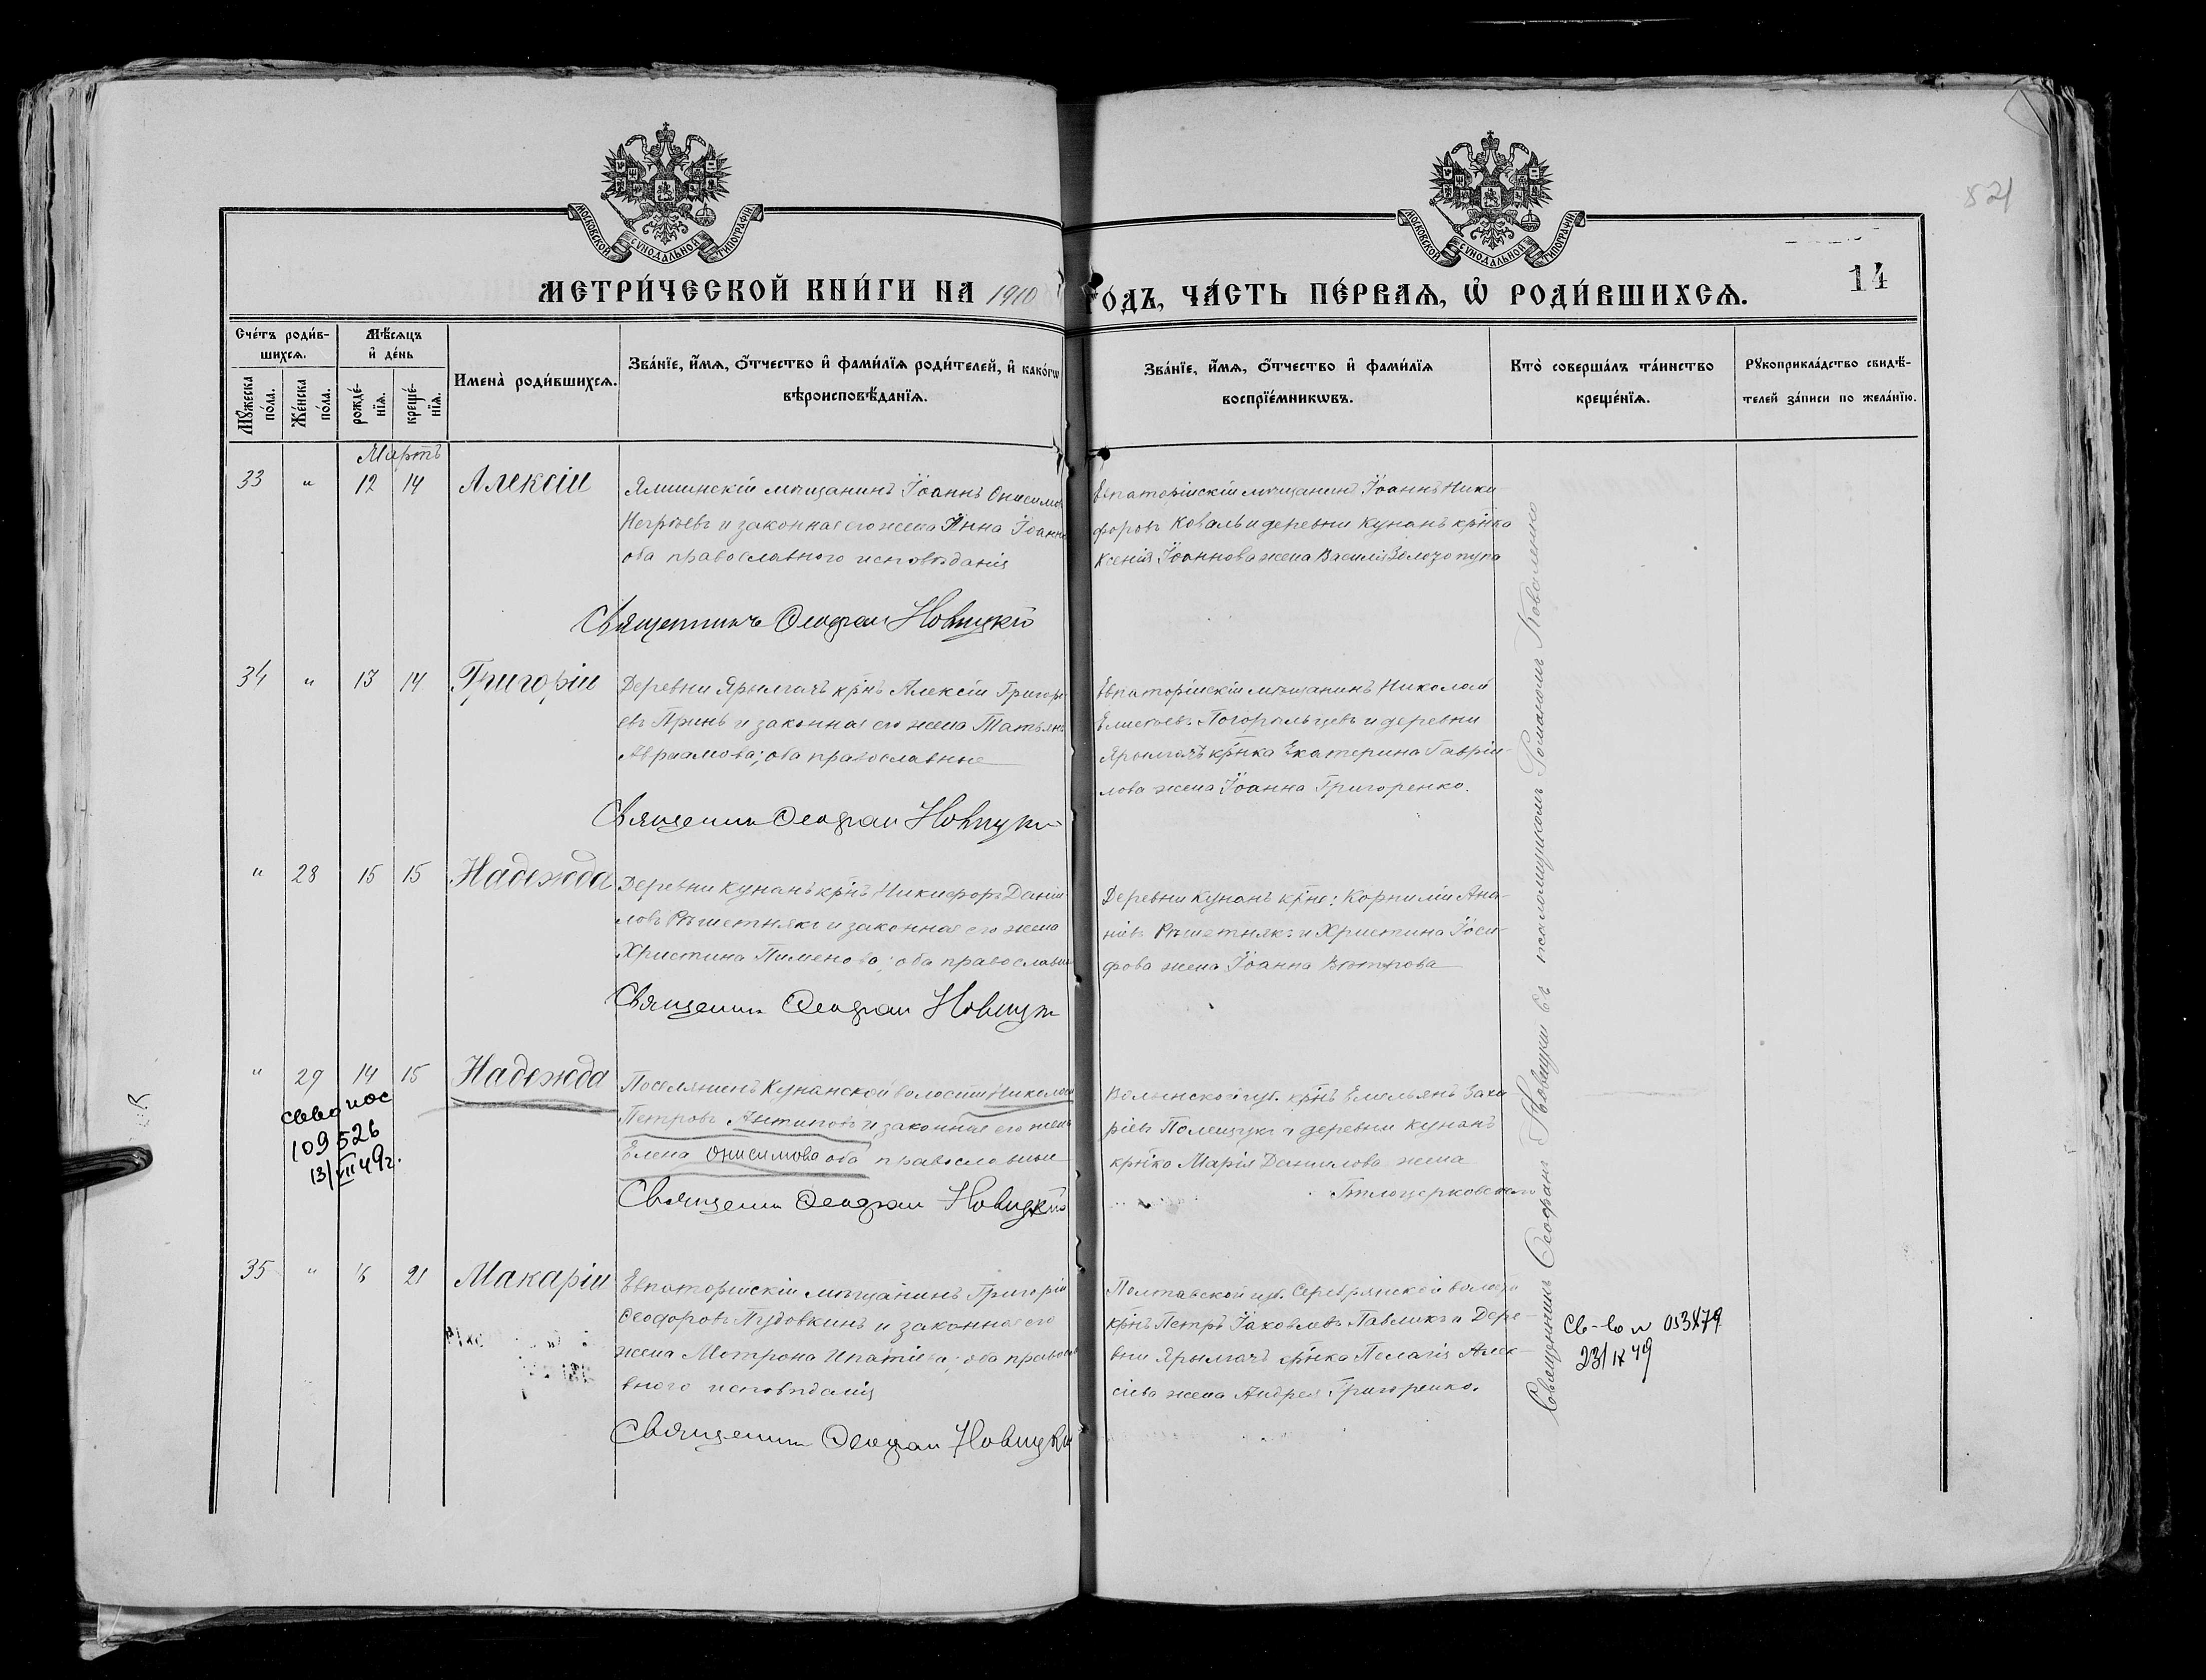 МОСКОВСКОЙ СѴНОДАЛЬНОЙ ТИПОГРАФІИ
МОСКОВСКОЙ СѴНОДАЛЬНОЙ ТИПОГРАФІИ
521
14
МЕТРИ́ЧЕСКОЙ КНИ́ГИ НА 1910
ГО́ДЪ, ЧА́СТЬ ПЕ́РВАѦ, Ѡ҆ РОДИ́ВШИХСѦ.
Сче́тъ роди́в-
шихсѧ.
Мꙋжеска
по́ла.
Же́нска
по́ла.
Мѣ́сѧцъ
и҆ де́нь
рожде́-
нїѧ.
креще́-
нїѧ.
Имена̀ роди́вшихсѧ.
Зва́нїе, и҆́мѧ, ѻ҆́тчество и҆ фами́лїѧ роди́телей, и҆ како́гѡ
вѣроисповѣ́данїѧ.
Зва́нїе, и҆́мѧ, ѻ҆́тчество и҆ фами́лїѧ
воспрїе́мникѡвъ.
Кто̀ соверша́лъ та́инство
креще́нїѧ.
Рꙋкоприкла́дство свидѣ́-
телей за́писи по жела́нїю.
Мартъ
33 " 12 14 Алексій
Ялтинскій мѣщанинъ Іоаннъ Онисимовъ
и законная его жена Анна Іоаннова
оба православного исповѣданія
Священникъ Ѳеофан Новицкій
Евпаторійскій мѣщанинъ Іоаннъ Ники-
форовъ Коваль и деревни Кунанъ кр҃нка
Ксенія Іоаннова жена Василія Золозопупа
34 " 13 14 Григорій
Деревни Ярылгачъ кр҃нъ Алексій Григорь-
евъ Принь и законная его жена Татьяна
Авраамова; оба православные
Священник Ѳеофан Новицкій
Евпаторійскій мѣщанинъ Николай
Елисѣевъ Погорѣльцевъ и деревни
Ярылгачъ кр҃нка Екатерина Гаврии-
лова жена Іоанна Григоренко.
" 28 15 15 Надежда
Деревни Кунанъ кр҃нъ Никифоръ Даніи-
ловъ Рѣшетнякъ и законная его жена
Христина Пименова; оба православн
Священник Ѳеофан Новицк
Деревни Кунанъ кр҃не: Корнилій Ана-
ніевъ Рѣшетнякъ и Христина Іоси-
фова жена Іоанна Вѣтрова
" 29 14 15 Надежда
Поселянинъ Кунанской волости Николай
Петровъ Антиповъ и законная его жена
Елена Онисимова оба православные
Священник Ѳеофан Новицкій
Св-во
109526
13/VII 49г.
Волынской губ. кр҃нъ Емельянъ Заха-
ріевъ Полещукъ и деревни Кунанъ
кр҃нка Марія Данилова жена
Бѣлоцерковскаго
35 " 16 21 Макарій
Евпаторійскій мѣщанинъ Григорій
Ѳеодоровъ Пудовкинъ и законная его
жена Матрона Ипатіева; оба правосла-
вного исповѣданія
Священник Ѳеофан Новицкій
Полтавской губ. Серебрянской волости
кр҃нъ Петръ Іаковлевъ Павликъ и Дере-
вни Ярылгачъ кр҃нка Пелагія Алек-
сіева жена Андрея Григоренко.
Священникъ Ѳеофанъ Новицкій съ псаломщикомъ Романомъ Коваленко
Св-во № 053479
23/IX 49